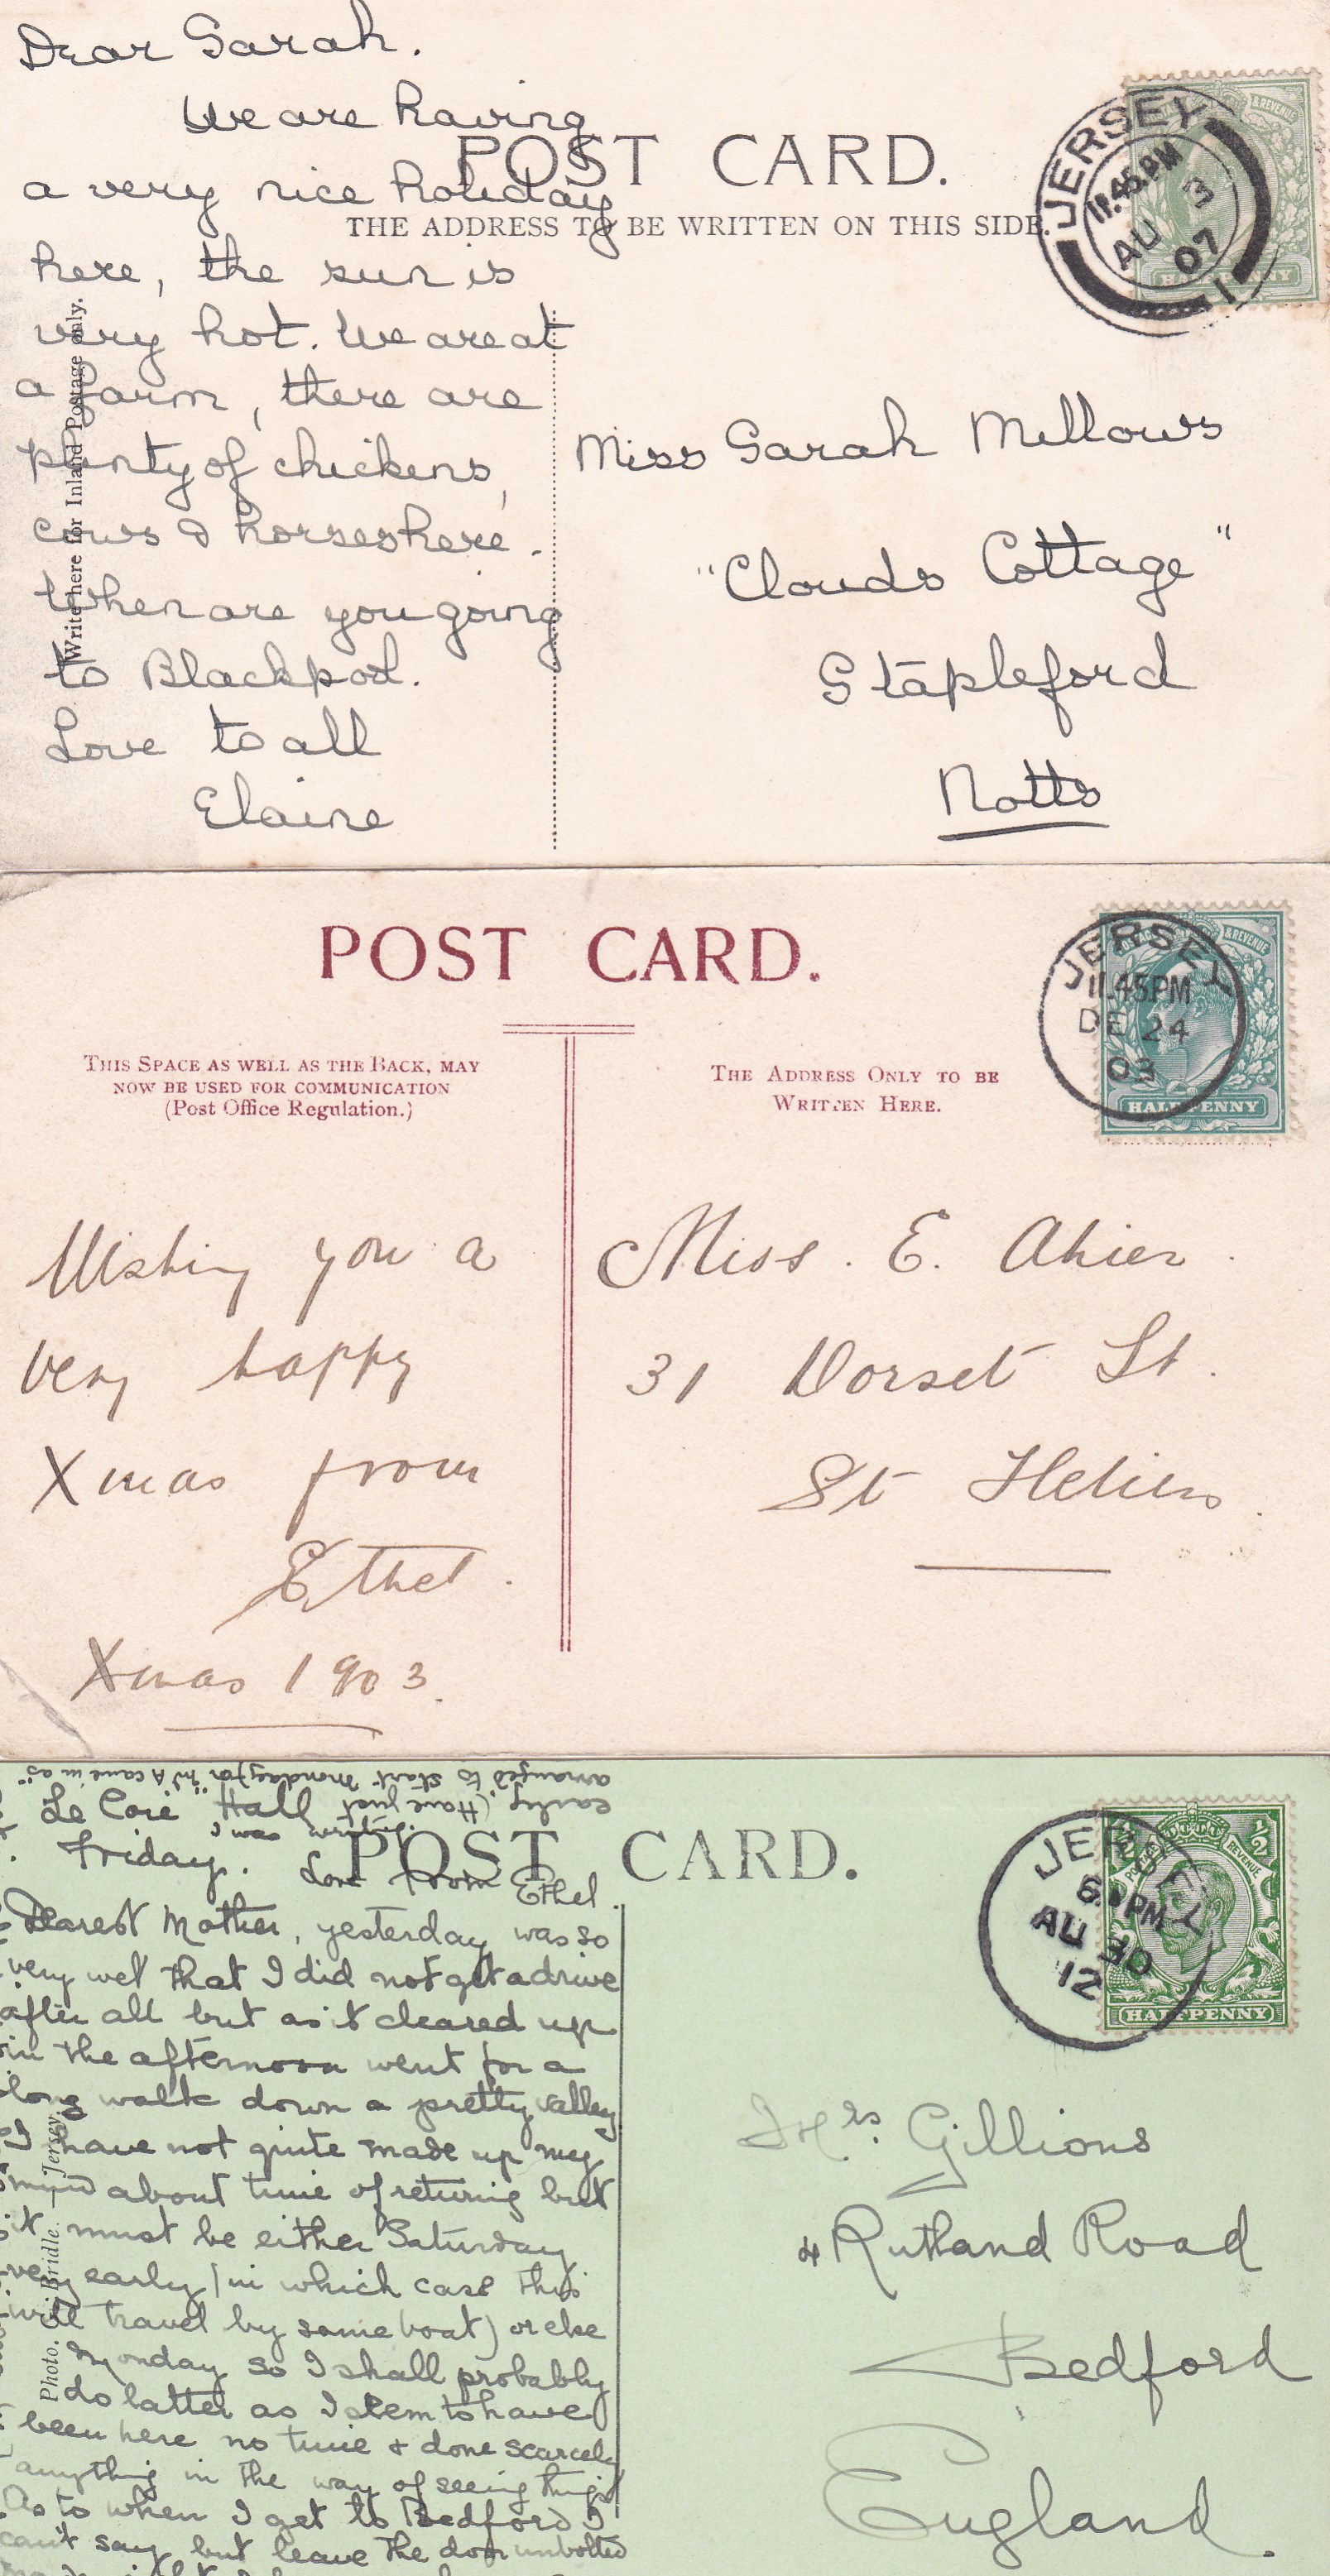 Dear Sarah.
We are having
a very nice holiday
here, the sun is
very hot. We are at
a farm, there are
plenty of chickens,
cows & horses here.
When are you going
to Blackpool.
Love to all
Elaine
POST CARD.
THE ADDRESS TO BE WRITTEN ON THIS SIDE.
Write here for Inland Postage only.
JERSEY
11.45.PM
AU 3
07
1
& REVENUE
HALFPENNY
Miss Sarah Mellows
"Clouds Cottage"
Stapleford
Notts
POST CARD.
THIS SPACE AS WELL AS THE BACK, MAY
NOW BE USED FOR COMMUNICATION
(Post Office Regulation.)
THE ADDRESS ONLY TO BE
WRITTEN HERE.
JERSEY
11.45PM
DE 24
03
POSTAGE & REVENUE
HALFPENNY
Wishing you a
very happy
Xmas from
Ethel.
Xmas 1903.
Miss. E. Ahier.
31 Dorset St.
St Heliers.
arranged to start Monday for
early. (Have just
Hall
Friday.
Love from Ethel.
POST CARD.
Dearest Mother, yesterday was so
very wet that I did not get a drive
after all but as it cleared up
in the afternoon went for a
long walk down a pretty valley
I have not quite made up my
mind about time of returing but
it must be either Saturday
very early (in which case this
will travel by same boat) or else
Monday so I shall probably
do latter as I seem to have
been here no time & done scarcely
anything in the way of seeing things
As to when I get to Bedford I
can't say but leave the door unbolted
Photo. Bridle.—Jersey.
JERSEY
PM
AU 30
12
POSTAGE REVENUE
1/2
HALFPENNY
Mrs. Gillions
4 Rutland Road
Bedford
England.